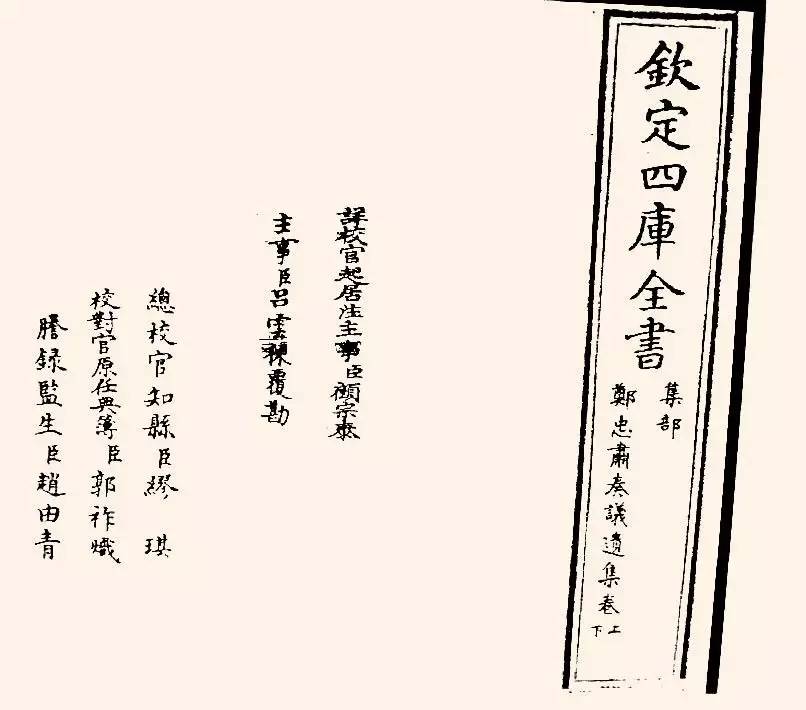 欽定四庫全書
集部
鄭忠肅奏議遺集卷上下
詳校官起居注主事臣顧宗泰
主事臣呂雲棟覆勘
總校官知縣臣繆琪
校對官原任典簿臣郭祚熾
謄録監生臣趙由青